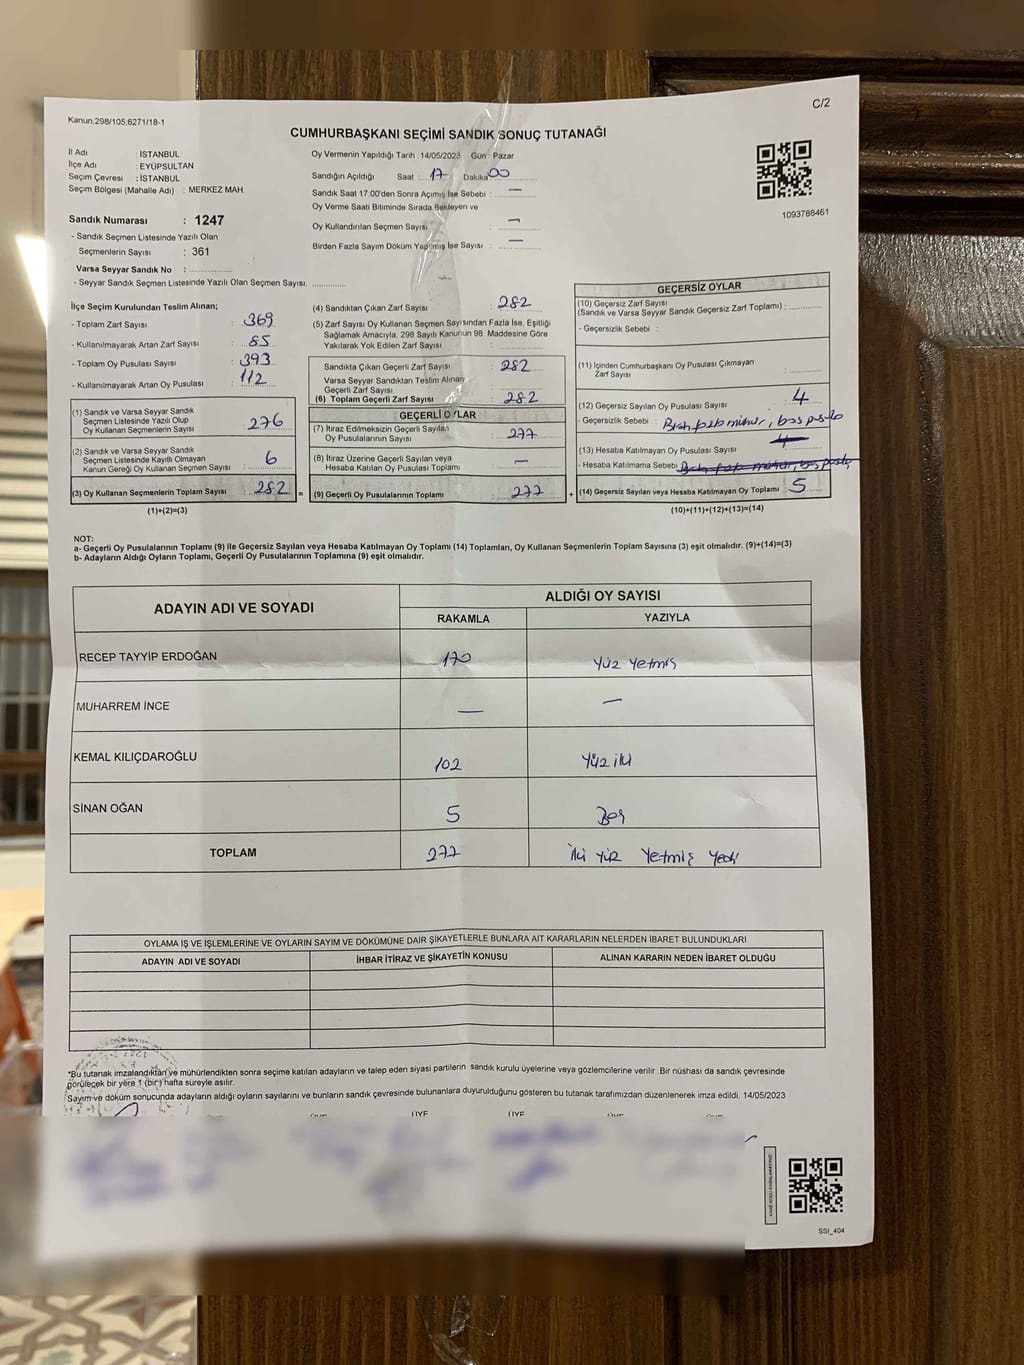 C/2
Kanun,298/105,6271/18-1
CUMHURBAŞKANI SEÇİMİ SANDIK SONUÇ TUTANAĞI
İl Adı : İSTANBUL
İlçe Adı : EYÜPSULTAN
Seçim Çevresi : İSTANBUL
Seçim Bölgesi (Mahalle Adı) : MERKEZ MAH.
Sandık Numarası : 1247
- Sandık Seçmen Listesinde Yazılı Olan
Seçmenlerin Sayısı : 361
Varsa Seyyar Sandık No :
- Seyyar Sandık Seçmen Listesinde Yazılı Olan Seçmen Sayısı
Oy Vermenin Yapıldığı Tarih : 14/05/2023 Gün : Pazar
Sandığın Açıldığı Saat : 17 Dakika 00
Sandık Saat 17:00'den Sonra Açılmış İse Sebebi : —
Oy Verme Saati Bitiminde Sırada Bekleyen ve
Oy Kullandırılan Seçmen Sayısı : —
Birden Fazla Sayım Döküm Yapılmış İse Sayısı : —
1093788461
İlçe Seçim Kurulundan Teslim Alınan;
- Toplam Zarf Sayısı : 369
- Kullanılmayarak Artan Zarf Sayısı : 85
- Toplam Oy Pusulası Sayısı : 393
- Kullanılmayarak Artan Oy Pusulası : 112
(1) Sandık ve Varsa Seyyar Sandık
Seçmen Listesinde Yazılı Olup
Oy Kullanan Seçmenlerin Sayısı : 276
(2) Sandık ve Varsa Seyyar Sandık
Seçmen Listesinde Kayıtlı Olmayan
Kanun Gereği Oy Kullanan Seçmen Sayısı : 6
(3) Oy Kullanan Seçmenlerin Toplam Sayısı : 282 =
(1)+(2)=(3)
(4) Sandıktan Çıkan Zarf Sayısı : 282
(5) Zarf Sayısı Oy Kullanan Seçmen Sayısından Fazla İse, Eşitliği
Sağlamak Amacıyla, 298 Sayılı Kanunun 98. Maddesine Göre
Yakılarak Yok Edilen Zarf Sayısı :
Sandıkta Çıkan Geçerli Zarf Sayısı : 282
Varsa Seyyar Sandıktan Teslim Alınan
Geçerli Zarf Sayısı :
(6) Toplam Geçerli Zarf Sayısı : 282
GEÇERLİ OYLAR
(7) İtiraz Edilmeksizin Geçerli Sayılan
Oy Pusulalarının Sayısı : 277
(8) İtiraz Üzerine Geçerli Sayılan veya
Hesaba Katılan Oy Pusulası Toplamı : —
(9) Geçerli Oy Pusulalarının Toplamı : 277 +
GEÇERSİZ OYLAR
(10) Geçersiz Zarf Sayısı
(Sandık ve Varsa Seyyar Sandık Geçersiz Zarf Toplamı) :
- Geçersizlik Sebebi :
(11) İçinden Cumhurbaşkanı Oy Pusulası Çıkmayan
Zarf Sayısı :
(12) Geçersiz Sayılan Oy Pusulası Sayısı : 4
- Geçersizlik Sebebi : mühür, boş pusula
(13) Hesaba Katılmayan Oy Pusulası Sayısı : 4
- Hesaba Katılmama Sebebi : mühür, boş pusula
(14) Geçersiz Sayılan veya Hesaba Katılmayan Oy Toplamı : 5
(10)+(11)+(12)+(13)=(14)
NOT:
a- Geçerli Oy Pusulalarının Toplamı (9) ile Geçersiz Sayılan veya Hesaba Katılmayan Oy Toplamı (14) Toplamları, Oy Kullanan Seçmenlerin Toplam Sayısına (3) eşit olmalıdır. (9)+(14)=(3)
b- Adayların Aldığı Oyların Toplamı, Geçerli Oy Pusulalarının Toplamına (9) eşit olmalıdır.
ADAYIN ADI VE SOYADI
ALDIĞI OY SAYISI
RAKAMLA YAZIYLA
RECEP TAYYİP ERDOĞAN 170 Yüz Yetmiş
MUHARREM İNCE — —
KEMAL KILIÇDAROĞLU 102 Yüz iki
SİNAN OĞAN 5 Beş
TOPLAM 277 İki Yüz Yetmiş Yedi
OYLAMA İŞ VE İŞLEMLERİNE VE OYLARIN SAYIM VE DÖKÜMÜNE DAİR ŞİKAYETLERLE BUNLARA AİT KARARLARIN NELERDEN İBARET BULUNDUKLARI
ADAYIN ADI VE SOYADI İHBAR İTİRAZ VE ŞİKAYETİN KONUSU ALINAN KARARIN NEDEN İBARET OLDUĞU
*Bu tutanak imzalandıktan ve mühürlendikten sonra seçime katılan adayların ve talep eden siyasi partilerin sandık kurulu üyelerine veya gözlemcilerine verilir .Bir nüshası da sandık çevresinde
görülecek bir yere 1 (bir) hafta süreyle asılır.
Sayım ve döküm sonucunda adayların aldığı oyların sayılarını ve bunların sandık çevresinde bulunanlara duyurulduğunu gösteren bu tutanak tarafımızdan düzenlenerek imza edildi. 14/05/2023
ÜYE ÜYE
SSI_404